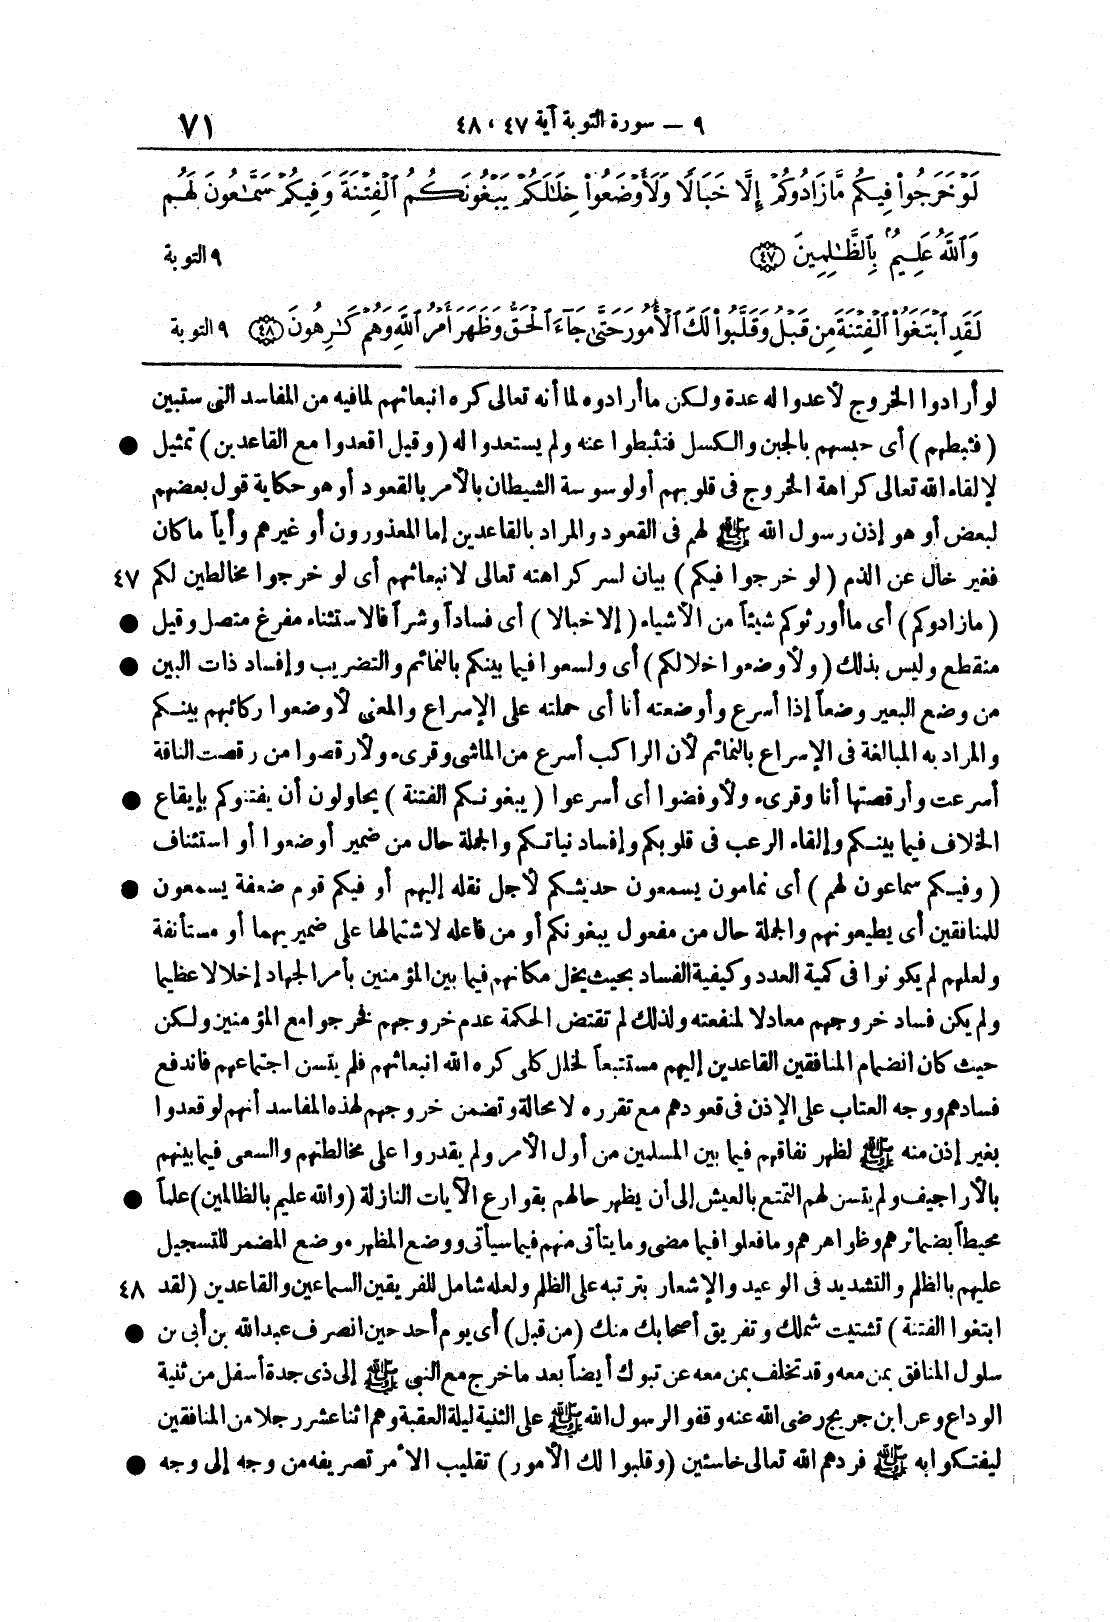 ٩ – سورة التوبة آية ٤٧ ، ٤٨ ٧١
لَوْ خَرَجُوا۟ فِيكُم مَّا زَادُوكُمْ إِلَّا خَبَالًا وَلَأَوْضَعُوا۟ خِلَـٰلَكُمْ يَبْغُونَكُمُ ٱلْفِتْنَةَ وَفِيكُمْ سَمَّـٰعُونَ لَهُمْ
وَٱللَّهُ عَلِيمٌۢ بِٱلظَّـٰلِمِينَ ﴿٤٧﴾ ٩ التوبة
لَقَدِ ٱبْتَغَوُا۟ ٱلْفِتْنَةَ مِن قَبْلُ وَقَلَّبُوا۟ لَكَ ٱلْأُمُورَ حَتَّىٰ جَآءَ ٱلْحَقُّ وَظَهَرَ أَمْرُ ٱللَّهِ وَهُمْ كَـٰرِهُونَ ﴿٤٨﴾ ٩ التوبة
لو أرادوا الخروج لأعدوا له عدة ولكن ما أرادوه لما أنه تعالى كره انبعاثهم لما فيه من المفاسد التى ستبين
(فثبطهم) أى حبسهم بالجبن والكسل فتثبطوا عنه ولم يستعدوا له (وقيل اقعدوا مع القاعدين) تمثيل ●
لإلقاء الله تعالى كراهة الخروج فى قلوبهم أو لوسوسة الشيطان بالأمر بالقعود أو هو حكاية قول بعضهم
لبعض أو هو إذن رسول الله ﷺ لهم فى القعود والمراد بالقاعدين إما المعذورون أو غيرهم وأياً ما كان
فغير خال عن الذم (لو خرجوا فيكم) بيان لسر كراهته تعالى لانبعاثهم أى لو خرجوا مخالطين لكم ٤٧
(مازادوكم) أى ما أورثوكم شيئاً من الأشياء (إلا خبالا) أى فساداً وشراً فالاستثناء مفرغ متصل وقيل ●
منقطع وليس بذلك (ولأوضعوا خلالكم) أى ولسعوا فيما بينكم بالنمائم والتضريب وإفساد ذات البين ●
من وضع البعير وضعاً إذا أسرع وأوضعته أنا أى حملته على الإسراع والمعنى لأوضعوا ركائبهم بينكم
والمراد به المبالغة فى الإسراع بالنمائم لأن الراكب أسرع من الماشى وقرىء ولأرقصوا من رقصت الناقة
أسرعت وأرقصتها أنا وقرىء ولأوفضوا أى أسرعوا (يبغونكم الفتنة) يحاولون أن يفتنوكم بإيقاع ●
الخلاف فيما بينكم وإلقاء الرعب فى قلوبكم وإفساد نياتكم والجملة حال من ضمير أوضعوا أو استئناف
(وفيكم سماعون لهم) أى نمامون يسمعون حديثكم لأجل نقله إليهم أو فيكم قوم ضعفة يسمعون ●
للمنافقين أى يطيعونهم والجملة حال من مفعول يبغونكم أو من فاعله لاشتمالها على ضميريهما أو مستأنفة
ولعلهم لم يكونوا فى كمية العدد وكيفية الفساد بحيث يخل مكانهم فيما بين المؤمنين بأمر الجهاد إخلالا عظيما
ولم يكن فساد خروجهم معادلا لمنفعته ولذلك لم تقتض الحكمة عدم خروجهم فخرجوا مع المؤمنين ولكن
حيث كان انضمام المنافقين القاعدين إليهم مستتبعاً لخلل كلى كره الله انبعاثهم فلم يتسن اجتماعهم فاندفع
فسادهم ووجه العتاب على الإذن فى قعودهم مع تقرره لا محالة وتضمن خروجهم لهذه المفاسد أنهم لو قعدوا
بغير إذن منه ﷺ لظهر نفاقهم فيما بين المسلمين من أول الأمر ولم يقدروا على مخالطتهم والسعى فيما بينهم
بالأراجيف ولم يتسن لهم التمتع بالعيش إلى أن يظهر حالهم بقوارع الآيات النازلة (والله عليم بالظالمين) علماً ●
محيطاً بضمائرهم وظواهرهم وما فعلوا فيما مضى وما يتأتى منهم فيما سيأتى ووضع المظهر موضع المضمر للتسجيل
عليهم بالظلم والتشديد فى الوعيد والإشعار بترتبه على الظلم ولعله شامل للفريقين السماعين والقاعدين (لقد ٤٨
ابتغوا الفتنة) تشتيت شملك وتفريق أصحابك منك (من قبل) أى يوم أحد حين انصرف عبدالله بن أبى بن ●
سلول المنافق بمن معه وقد تخلف بمن معه عن تبوك أيضاً بعد ما خرج مع النبى ﷺ إلى ذى جدة أسفل من ثنية
الوداع وعر ابن جريج رضى الله عنه وقفوا لرسول الله ﷺ على الثنية ليلة العقبة وهم اثنا عشر رجلا من المنافقين
ليفتكوا به ﷺ فردهم الله تعالى خاسئين (وقلبوا لك الأمور) تقليب الأمر تصريفه من وجه إلى وجه ●